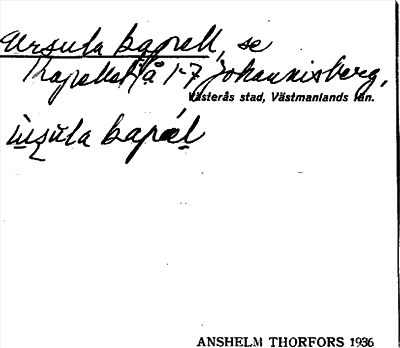 Ursula kapell, se
Kapellskå 1-7 Johannisberg,
Västerås stad, Västmanlands län.
ursula kapäl
ANSHELM THORFORS 1936